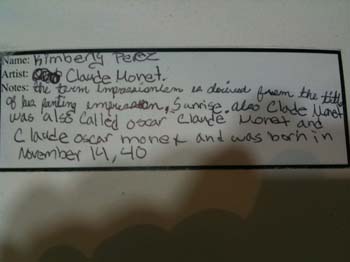 Name: Kimberly Perez
Artist: Claude Monet.
Notes: the term Impressionism is derived from the title
of his panting impression, Sunrise. also Clade Monet
was also Called oscar Claude Monet and
Claude oscar monet and was born in
November 14, 40